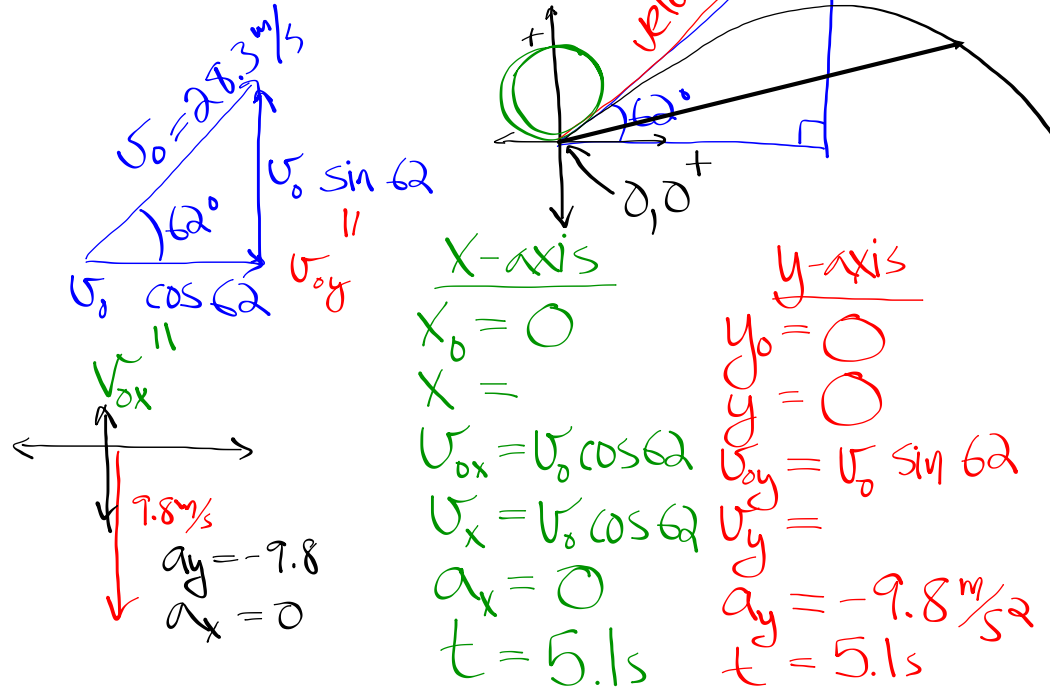 v₀ = 28.3 m/s
62°
v₀ sin 62
=
v₀y
v₀ cos 62
=
V₀x
+
velo
62°
+
0,0
9.8 m/s
ay = -9.8
ax = 0
x-axis
x₀ = 0
x =
v₀x = v₀ cos 62
vx = v₀ cos 62
ax = 0
t = 5.1s
y-axis
y₀ = 0
y = 0
v₀y = v₀ sin 62
vy =
ay = -9.8 m/s²
t = 5.1s